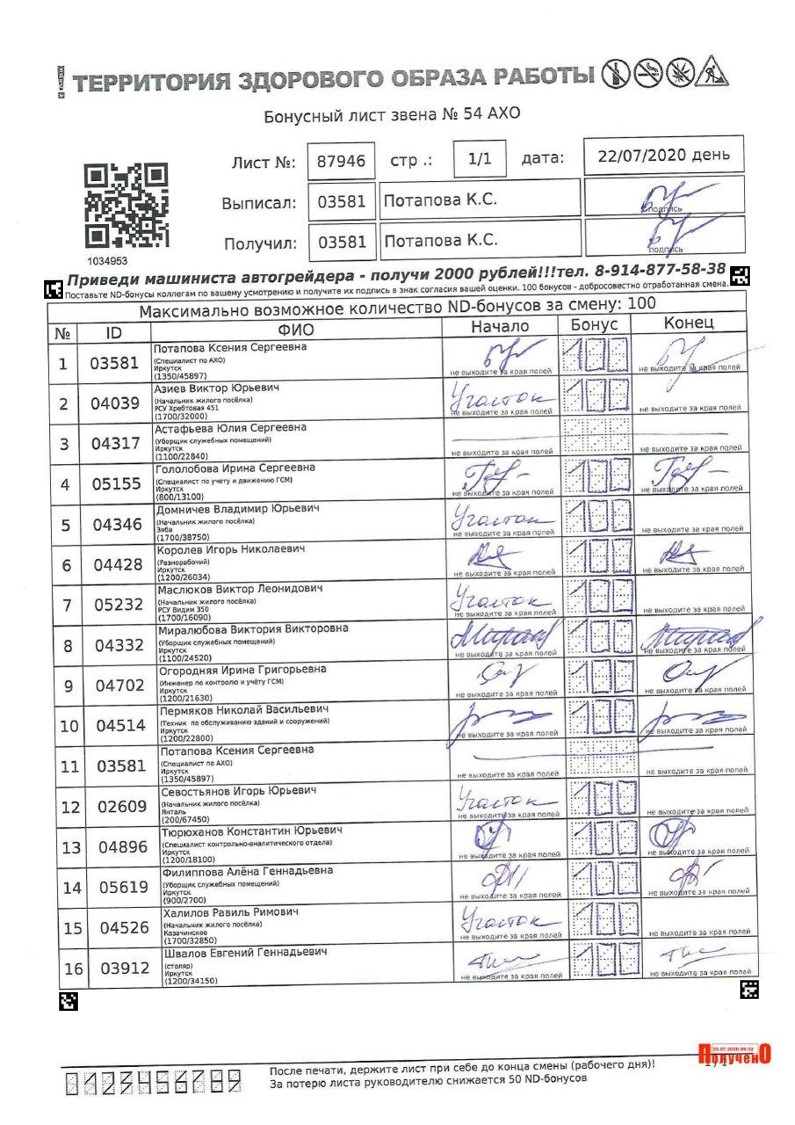 ТЕРРИТОРИЯ ЗДОРОВОГО ОБРАЗА РАБОТЫ
Бонусный лист звена № 54 АХО
Лист №: 87946 стр .: 1/1 дата: 22/07/2020 день
Выписал: 03581 Потапова К.С. подпись
Получил: 03581 Потапова К.С. подпись
1034953
Приведи машиниста автогрейдера - получи 2000 рублей!!!тел. 8-914-877-58-38
Поставьте ND-бонусы коллегам по вашему усмотрению и получите их подпись в знак согласия вашей оценки. 100 бонусов - добросовестно отработанная смена.
Максимально возможное количество ND-бонусов за смену: 100
№ ID ФИО Начало Бонус Конец
1 03581 Потапова Ксения Сергеевна 100
(Специалист по АХО)
Иркутск
(1350/45897) не выходите за края полей не выходите за края полей
2 04039 Азиев Виктор Юрьевич Участок 100
(Начальник жилого посёлка)
РСУ Хребтовая 451
(1700/32000) не выходите за края полей не выходите за края полей
3 04317 Астафьева Юлия Сергеевна
(Уборщик служебных помещений)
Иркутск
(1100/22840) не выходите за края полей не выходите за края полей
4 05155 Гололобова Ирина Сергеевна 100
(Специалист по учету и движению ГСМ)
Иркутск
(800/13100) не выходите за края полей не выходите за края полей
5 04346 Домничев Владимир Юрьевич Участок 100
(Начальник жилого посёлка)
Зяба
(1700/38750) не выходите за края полей не выходите за края полей
6 04428 Королев Игорь Николаевич 100
(Разнорабочий)
Иркутск
(1200/26034) не выходите за края полей не выходите за края полей
7 05232 Маслюков Виктор Леонидович Участок 100
(Начальник жилого посёлка)
РСУ Видим 350
(1700/16090) не выходите за края полей не выходите за края полей
8 04332 Миралюбова Виктория Викторовна 100
(Уборщик служебных помещений)
Иркутск
(1100/24520) не выходите за края полей не выходите за края полей
9 04702 Огородняя Ирина Григорьевна 100
(Инженер по контролю и учёту ГСМ)
Иркутск
(1200/21630) не выходите за края полей не выходите за края полей
10 04514 Пермяков Николай Васильевич 100
(Техник по обслуживанию зданий и сооружений)
Иркутск
(1200/22800) не выходите за края полей не выходите за края полей
11 03581 Потапова Ксения Сергеевна
(Специалист по АХО)
Иркутск
(1350/45897) не выходите за края полей не выходите за края полей
12 02609 Севостьянов Игорь Юрьевич Участок 100
(Начальник жилого посёлка)
Янталь
(200/67450) не выходите за края полей не выходите за края полей
13 04896 Тюрюханов Константин Юрьевич 100
(Специалист контрольно-аналитического отдела)
Иркутск
(1200/18100) не выходите за края полей не выходите за края полей
14 05619 Филиппова Алёна Геннадьевна 100
(Уборщик служебных помещений)
Иркутск
(900/2700) не выходите за края полей не выходите за края полей
15 04526 Халилов Равиль Римович Участок 100
(Начальник жилого посёлка)
Казачинское
(1700/32850) не выходите за края полей не выходите за края полей
16 03912 Швалов Евгений Геннадьевич 100
(столяр)
Иркутск
(1200/34150) не выходите за края полей не выходите за края полей
ПолученО
0123456789 После печати, держите лист при себе до конца смены (рабочего дня)!
За потерю листа руководителю снижается 50 ND-бонусов